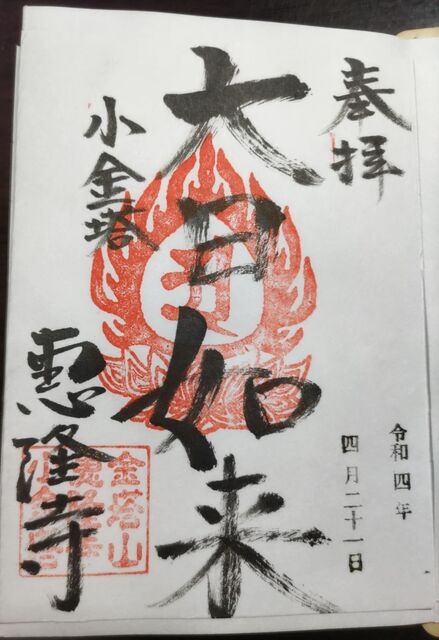 奉拝
令和四年
四月二十一日
大日如来
小金塔
恵隆寺
金塔山